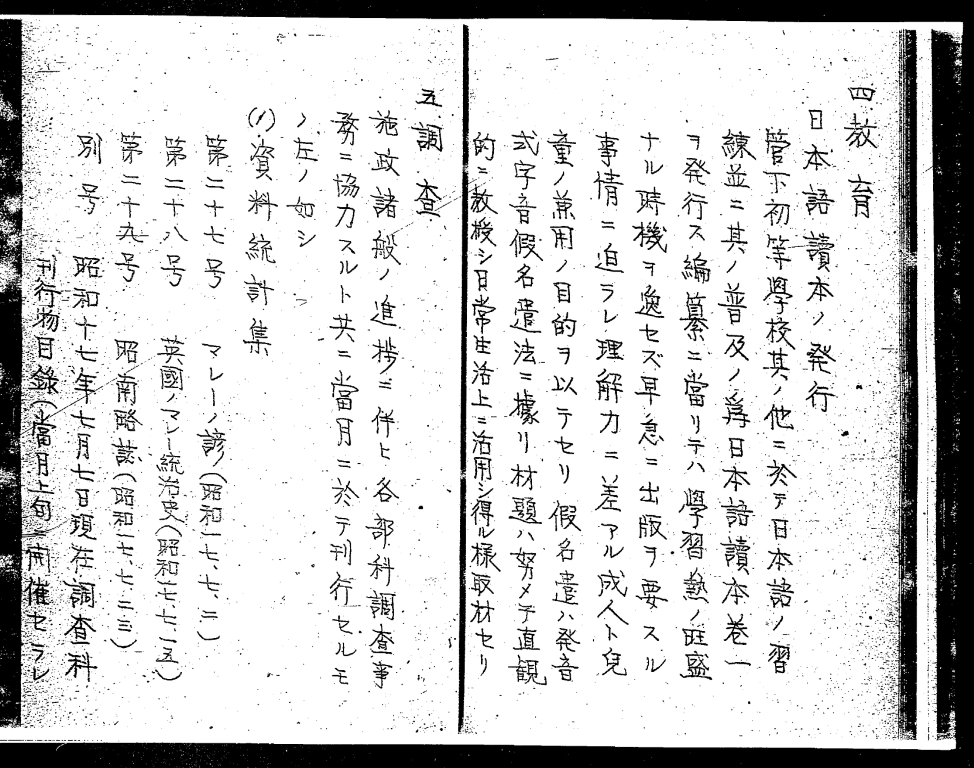 四教育
日本語讀本ノ発行
管下初等學校其ノ他ニ於テ日本語ノ習
練並ニ其ノ普及ノ爲日本語讀本巻一
ヲ発行ス編纂ニ當リテハ學習熱ノ旺盛
ナル時機ヲ逸セズ早急ニ出版ヲ要スル
事情ニ迫ラレ理解力ニ差アル成人ト兒
童ノ兼用ノ目的ヲ以テセリ假名遣ハ発音
式字音假名遣法ニ據リ材題ハ努メテ直観
的ニ教授シ日常生活上ニ活用シ得ル様取材セリ
五調査
施政諸般ノ進捗ニ伴ヒ各部科調査事
務ニ協力スルト共ニ當月ニ於テ刊行セルモ
ノ左ノ如シ
(1)資料統計集
第二十七号 マレーノ諺(昭和一七、七、二)
第二十八号 英國ノマレー統治史(昭和一七、七、一五)
第二十九号 昭南略誌(昭和一七、七、二三)
別号 昭和十七年七月七日現在調査科
刊行物目録(當月上旬ニ開催セラレ